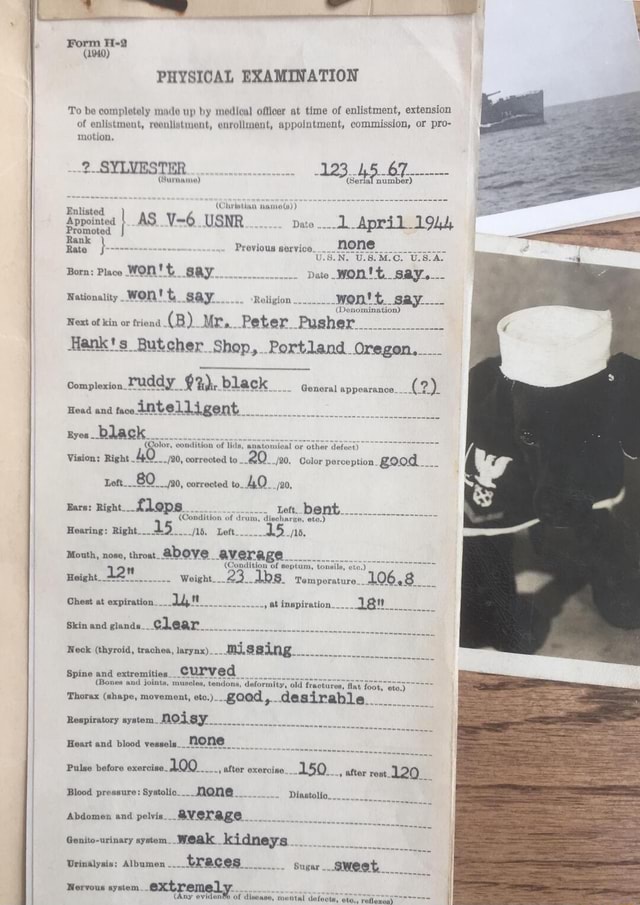 Form H-2
(1940)
PHYSICAL EXAMINATION
To be completely made up by medical officer at time of enlistment, extension
of enlistment, reenlistment, enrollment, appointment, commission, or pro-
motion.
? SYLVESTER 123 45 67
(Surname) (Serial number)
(Christian name(s))
Enlisted
Appointed } AS V-6 USNR Date 1 April 1944
Promoted
Rank
Rate } Previous service none
U.S.N. U.S.M.C. U.S.A.
Born: Place won't say Date won't say.
Nationality won't say Religion won't say
(Denomination)
Next of kin or friend (B) Mr. Peter Pusher
Hank's Butcher Shop, Portland Oregon.
Complexion ruddy (?) Hair black General appearance (?)
Head and face intelligent
Eyes black
(Color, condition of lids, anatomical or other defect)
Vision: Right 40 /20, corrected to 20 /20. Color perception good
Left 80 /20, corrected to 40 /20.
Ears: Right flops Left bent
(Condition of drum, discharge, etc.)
Hearing: Right 15 /15. Left 15 /15.
Mouth, nose, throat above average
(Condition of septum, tonsils, etc.)
Height 12" Weight 23 lbs Temperature 106.8
Chest at expiration 14", at inspiration 18"
Skin and glands clear
Neck (thyroid, trachea, larynx) missing
Spine and extremities curved
(Bones and joints, muscles, tendons, deformity, old fractures, flat foot, etc.)
Thorax (shape, movement, etc.) good, desirable
Respiratory system noisy
Heart and blood vessels none
Pulse before exercise 100, after exercise 150, after rest 120
Blood pressure: Systolic none Diastolic
Abdomen and pelvis average
Genito-urinary system weak kidneys
Urinalysis: Albumen traces Sugar sweet
Nervous system extremely
(Any evidence of disease, mental defects, etc., reflexes)